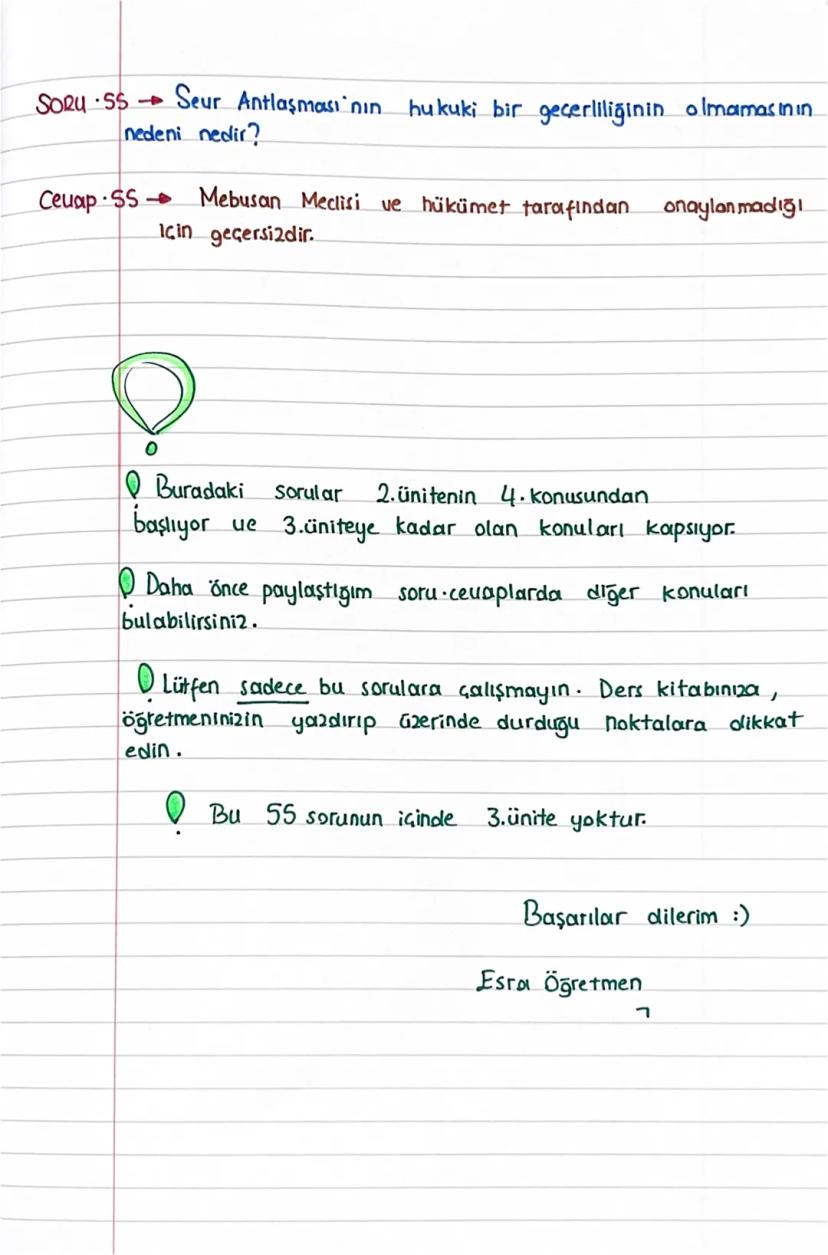 SORU · 55 → Sevr Antlaşması'nın hukuki bir geçerliliğinin olmamasının
nedeni nedir?
Cevap · 55 → Mebusan Meclisi ve hükümet tarafından onaylanmadığı
için geçersizdir.
Buradaki sorular 2.ünitenin 4.konusundan
başlıyor ve 3.üniteye kadar olan konuları kapsıyor.
Daha önce paylaştığım soru·cevaplarda diğer konuları
bulabilirsiniz.
Lütfen sadece bu sorulara çalışmayın. Ders kitabınıza,
öğretmeninizin yazdırıp üzerinde durduğu noktalara dikkat
edin.
Bu 55 sorunun içinde 3.ünite yoktur.
Başarılar dilerim :)
Esra Öğretmen